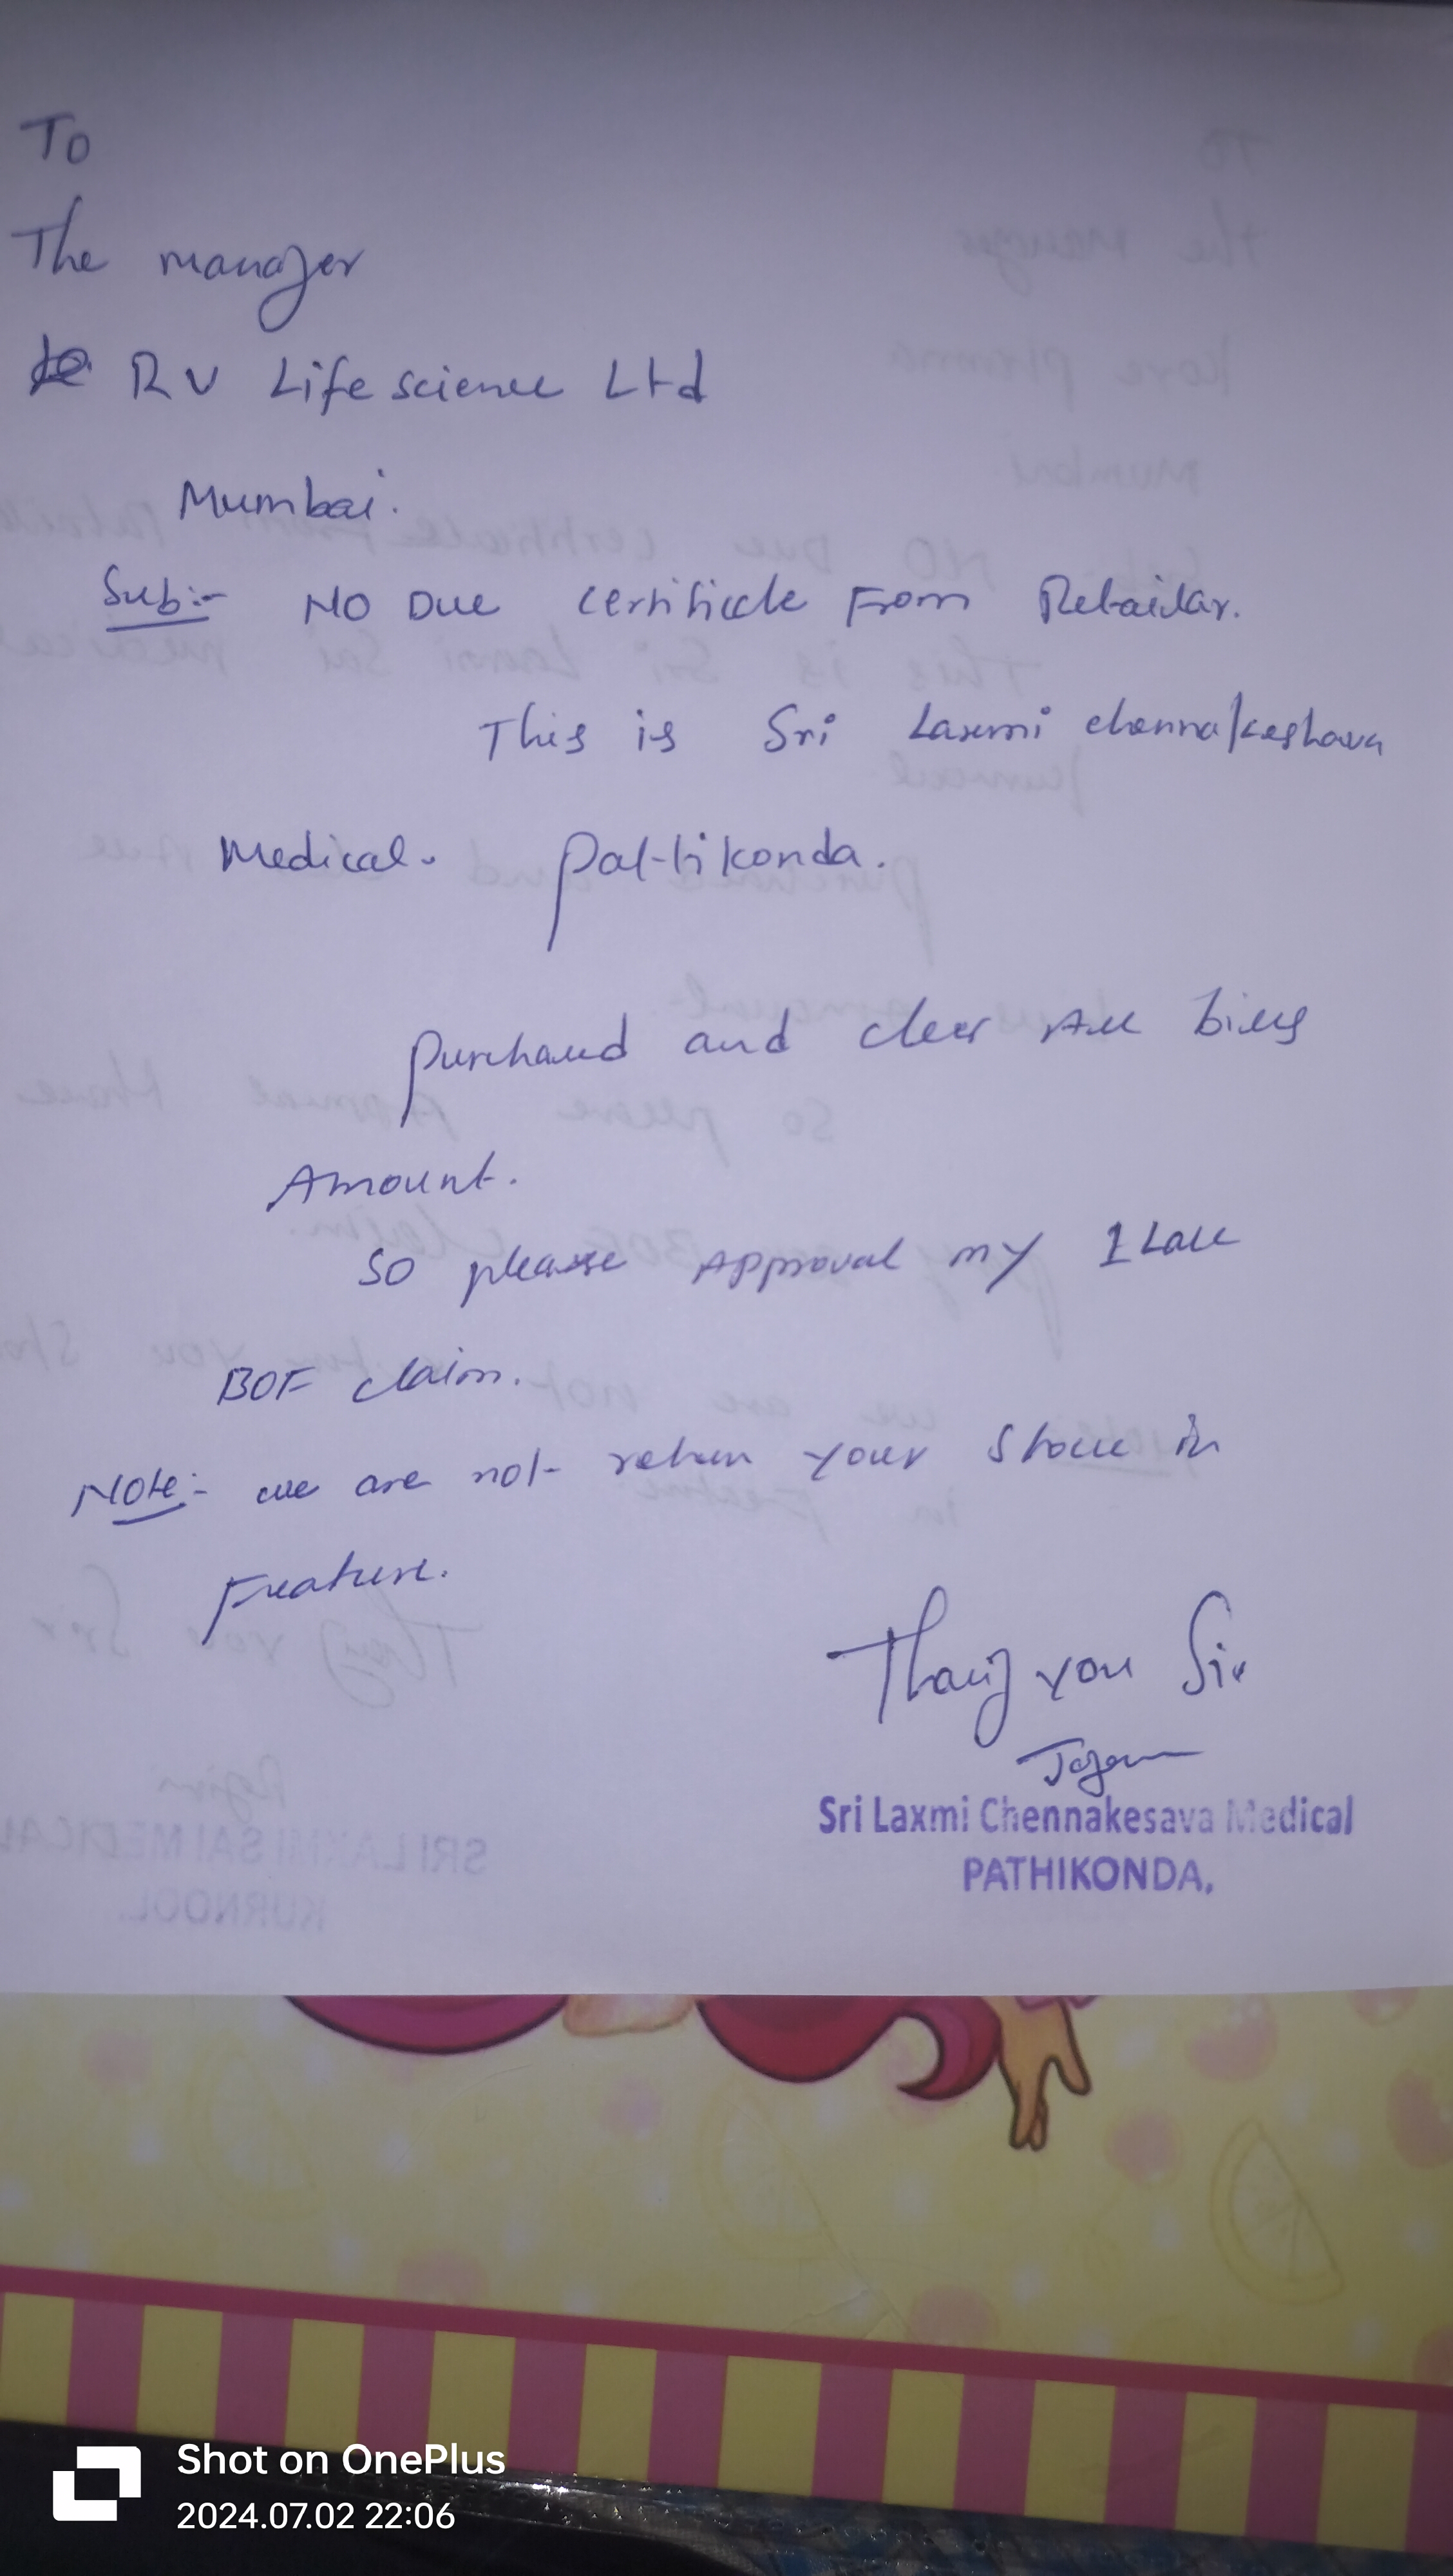 To
The manager
RV Life science Ltd
Mumbai.
Sub:- NO Due certificate From Retailar.
This is Sri Laxmi chennakeshava
Medical. pattikonda.
purchased and clear All bills
Amount.
So please Approval my 1 Lak
BOF claim.
Note:- we are not return your Stock in
Freature.
Thang you Sir
Sri Laxmi Chennakesava Medical
PATHIKONDA,
Shot on OnePlus
2024.07.02 22:06